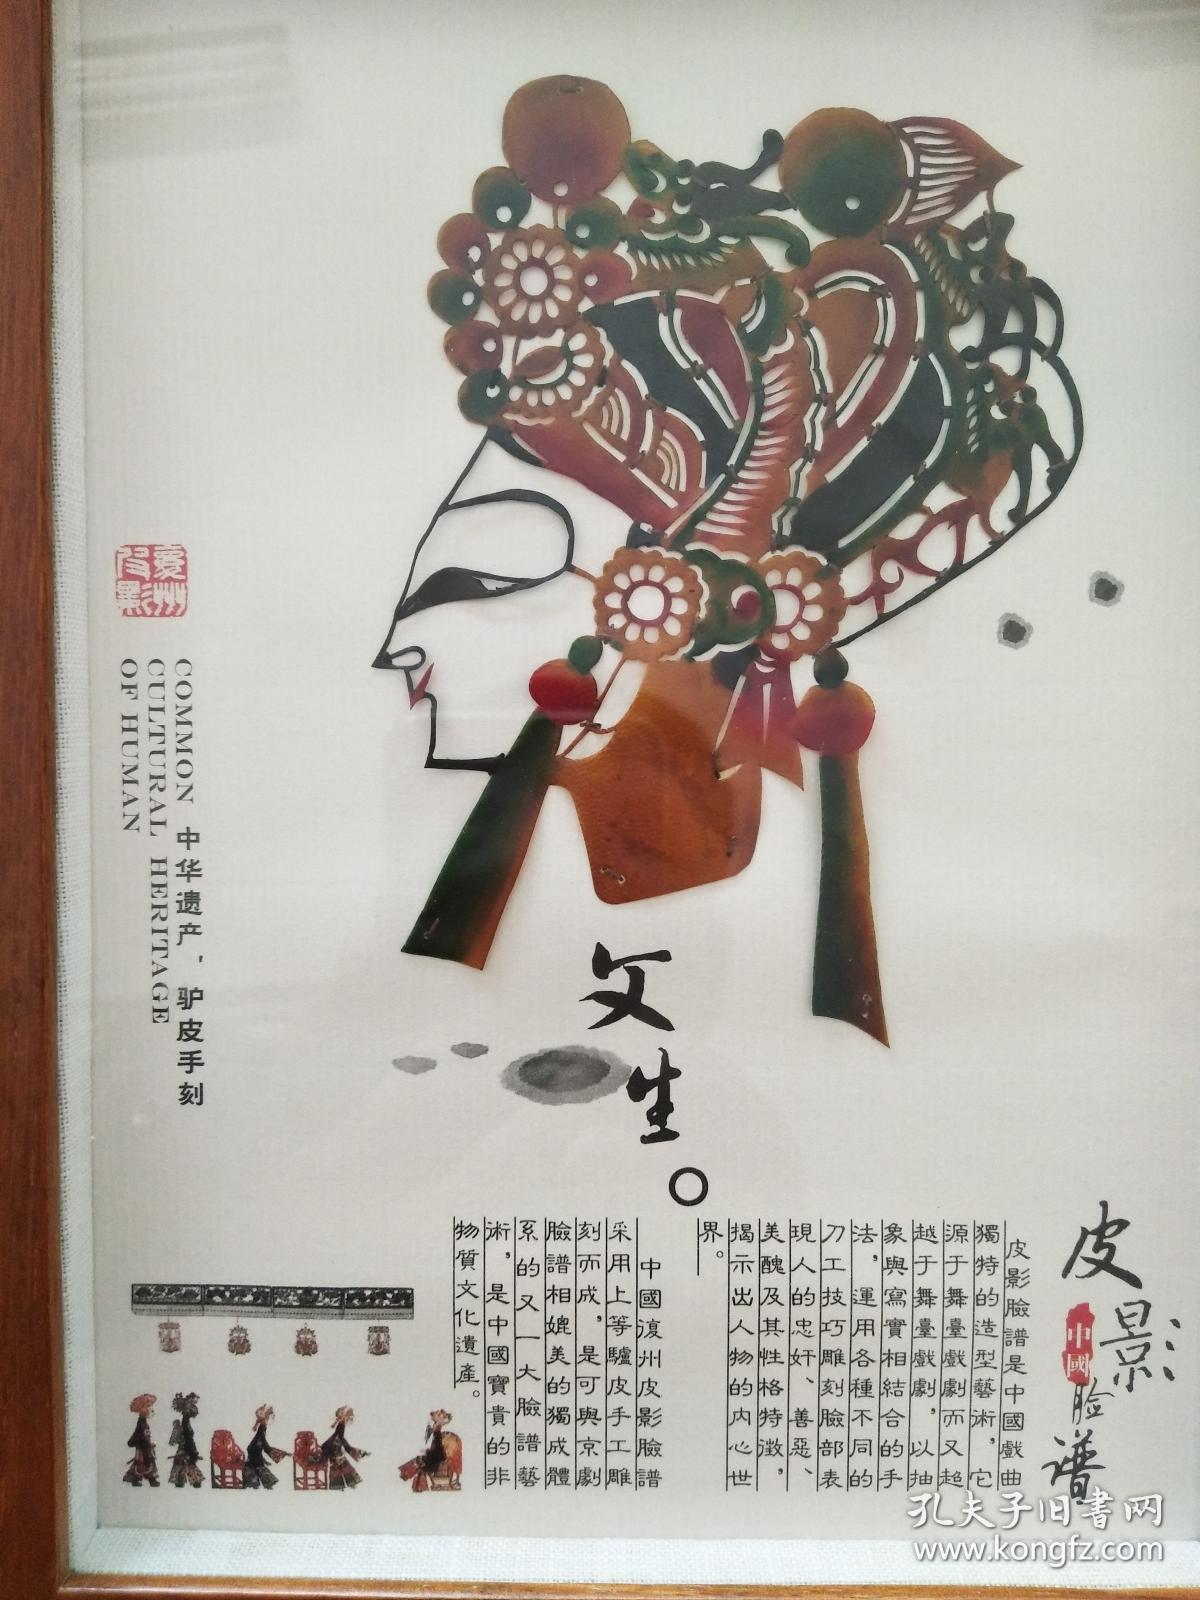 皮影
中國
脸谱
皮影臉譜是中國戲曲
獨特的造型藝術，它
源于舞臺戲劇而又超
越于舞臺戲劇，以抽
象與寫實相結合的手
法，運用各種不同的
刀工技巧雕刻臉部表
現人的忠奸、善惡、
美醜及其性格特徵，
揭示出人物的内心世
界。
中國復州皮影臉譜
采用上等驢皮手工雕
刻而成，是可與京劇
臉譜相媲美的獨成體
系的又一大臉譜藝
術，是中國寶貴的非
物質文化遺產。
文生。
COMMON 中华遗产，驴皮手刻
CULTURAL HERITAGE
OF HUMAN
复州
皮影
孔夫子旧书网
www.kongfz.com